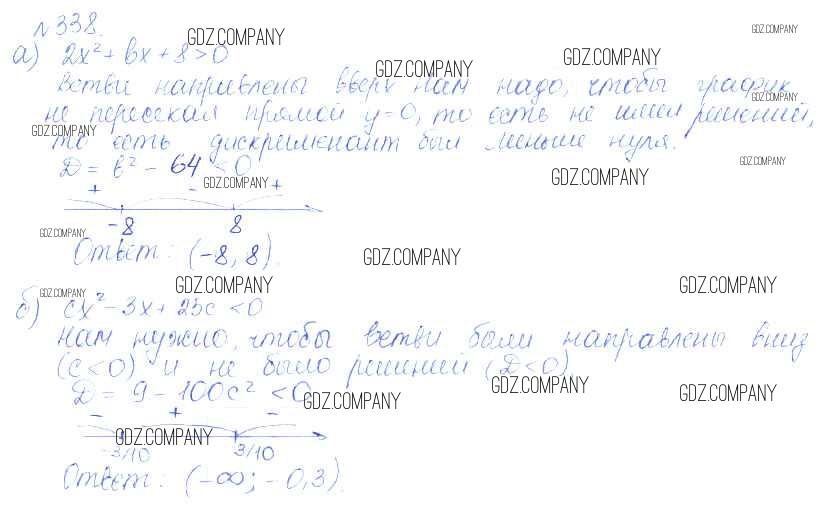 N 338. GDZ.COMPANY GDZ.COMPANY
а) 2x² + bx + 8 > 0 GDZ.COMPANY GDZ.COMPANY
Ветви направлены вверх нам надо, чтобы график
GDZ.COMPANY
не пересекал прямой y=0, то есть не имел решений,
GDZ.COMPANY
то есть дискриминант был меньше нуля.
D = b² - 64 < 0 GDZ.COMPANY GDZ.COMPANY
+ - GDZ.COMPANY +
-8 8
GDZ.COMPANY
Ответ: (-8, 8). GDZ.COMPANY
GDZ.COMPANY GDZ.COMPANY GDZ.COMPANY
б) cx² - 3x + 25c < 0
Нам нужно, чтобы ветви были направлены вниз
(c<0) и не было решений (D<0)
D = 9 - 100c² < 0 GDZ.COMPANY GDZ.COMPANY GDZ.COMPANY
- + -
GDZ.COMPANY
-3/10 3/10
Ответ: (-∞; -0,3).